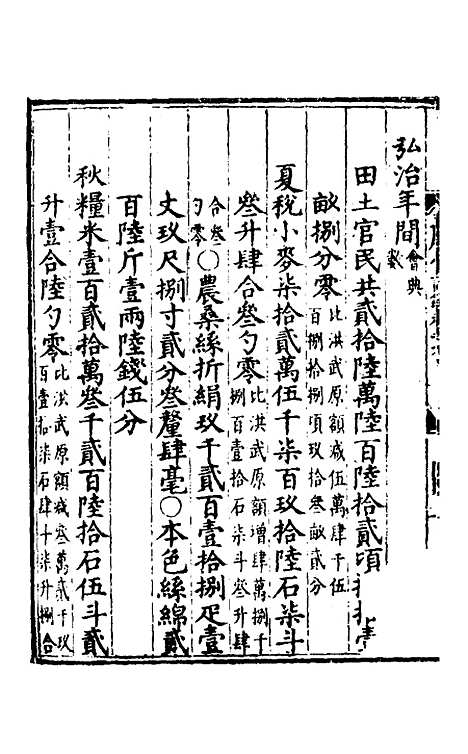 弘治年間會典數
田土官民共貳拾陸萬陸百陸拾貳項
畝捌分零比洪武原額減伍萬肆千伍百捌拾捌項玖拾叁畝貳分
夏稅小麥柒拾貳萬伍千柒百玖拾陸石柒斗
叁升肆合叁勺零比洪武原額增肆萬捌千捌百壹拾石柒斗叁升肆
合叁勺零○農桑絲折絹玖千貳百壹拾捌疋壹
丈玖尺捌寸貳分叁釐肆毫○本色絲綿貳
百陸斤壹兩陸錢伍分
秋糧米壹百貳拾萬叁千貳百陸拾石伍斗貳
升壹合陸勺零比洪武原額減叁萬貳千玖百壹拾柒石肆斗柒升捌合